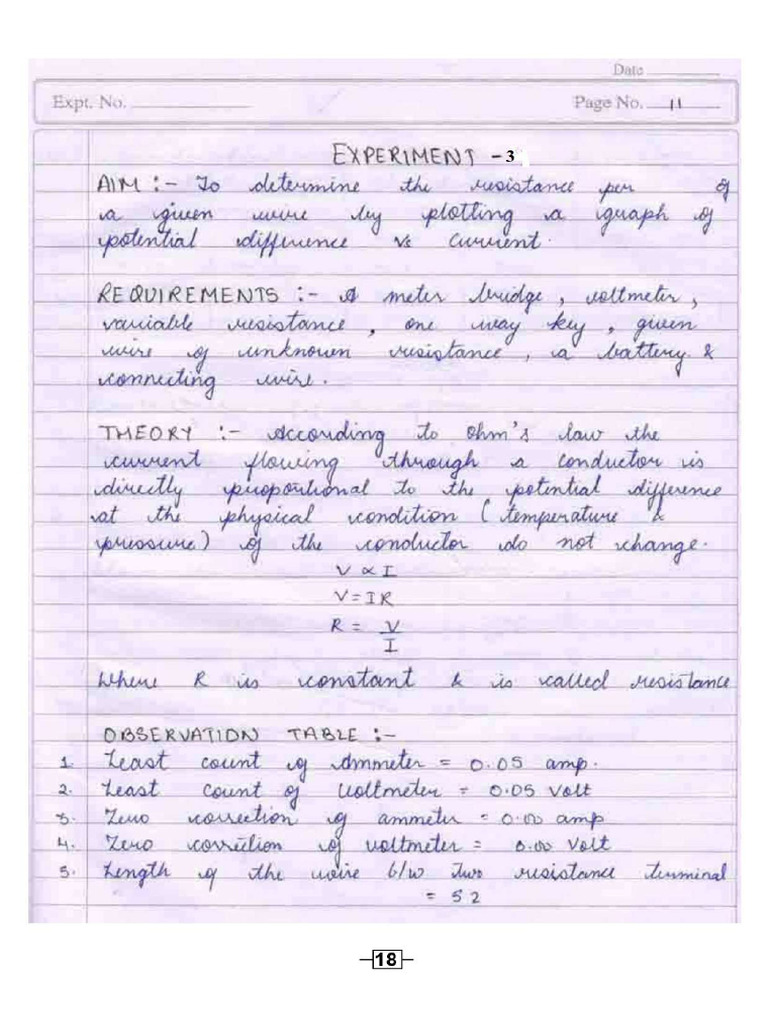 Date
Expt. No.
Page No. 11
EXPERIMENT - 3
AIM :- To determine the resistance per of
a given wire by plotting a graph of
potential difference vs current.
REQUIREMENTS :- A meter bridge, voltmeter,
variable resistance, one way key, given
wire of unknown resistance, a battery &
connecting wire.
THEORY :- According to Ohm's law the
current flowing through a conductor is
directly propoutional to the potential difference
at the physical condition (temperature &
pressure) of the conductor do not change.
V ∝ I
V = IR
R = V
I
Where R is constant & is called resistance
OBSERVATION TABLE :-
1. Least count of Ammeter = 0.05 amp.
2. Least count of Voltmeter = 0.05 Volt
3. Zero correction of ammeter = 0.00 amp
4. Zero correction of voltmeter = 0.00 Volt
5. Length of the wire b/w two resistance terminal
= 52
18